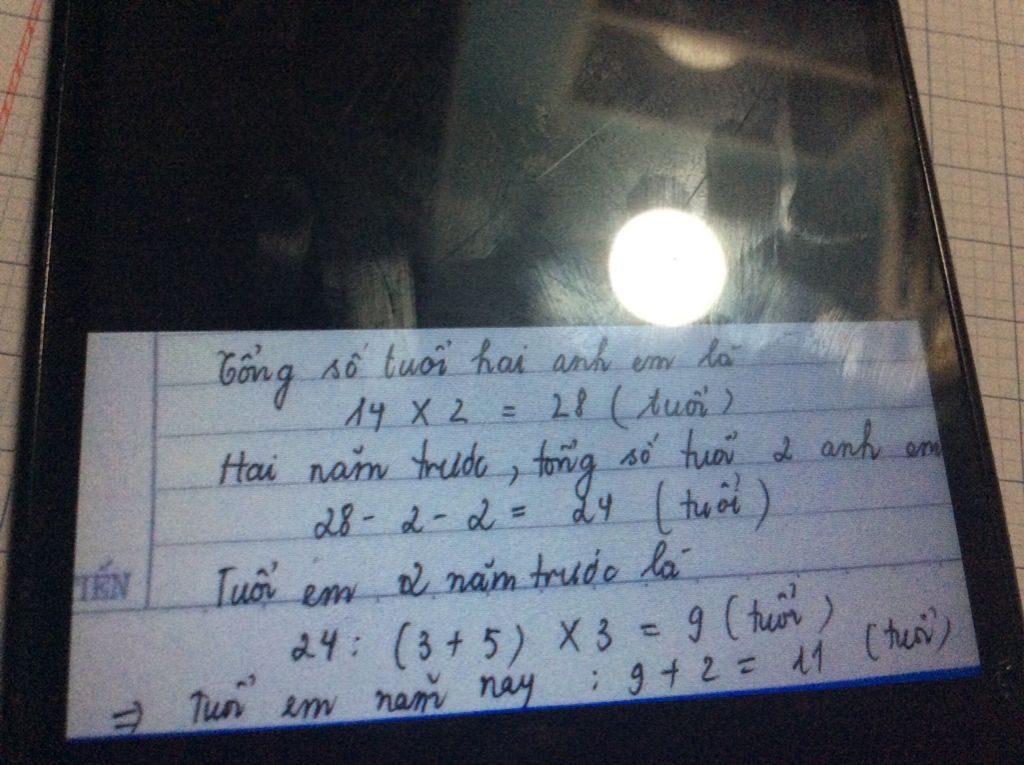 Tổng số tuổi hai anh em là
14 x 2 = 28 (tuổi)
Hai năm trước, tổng số tuổi 2 anh em
28 - 2 - 2 = 24 (tuổi)
TIẾN
Tuổi em 2 năm trước là
24 : (3 + 5) x 3 = 9 (tuổi)
=> Tuổi em năm nay : 9 + 2 = 11 (tuổi)